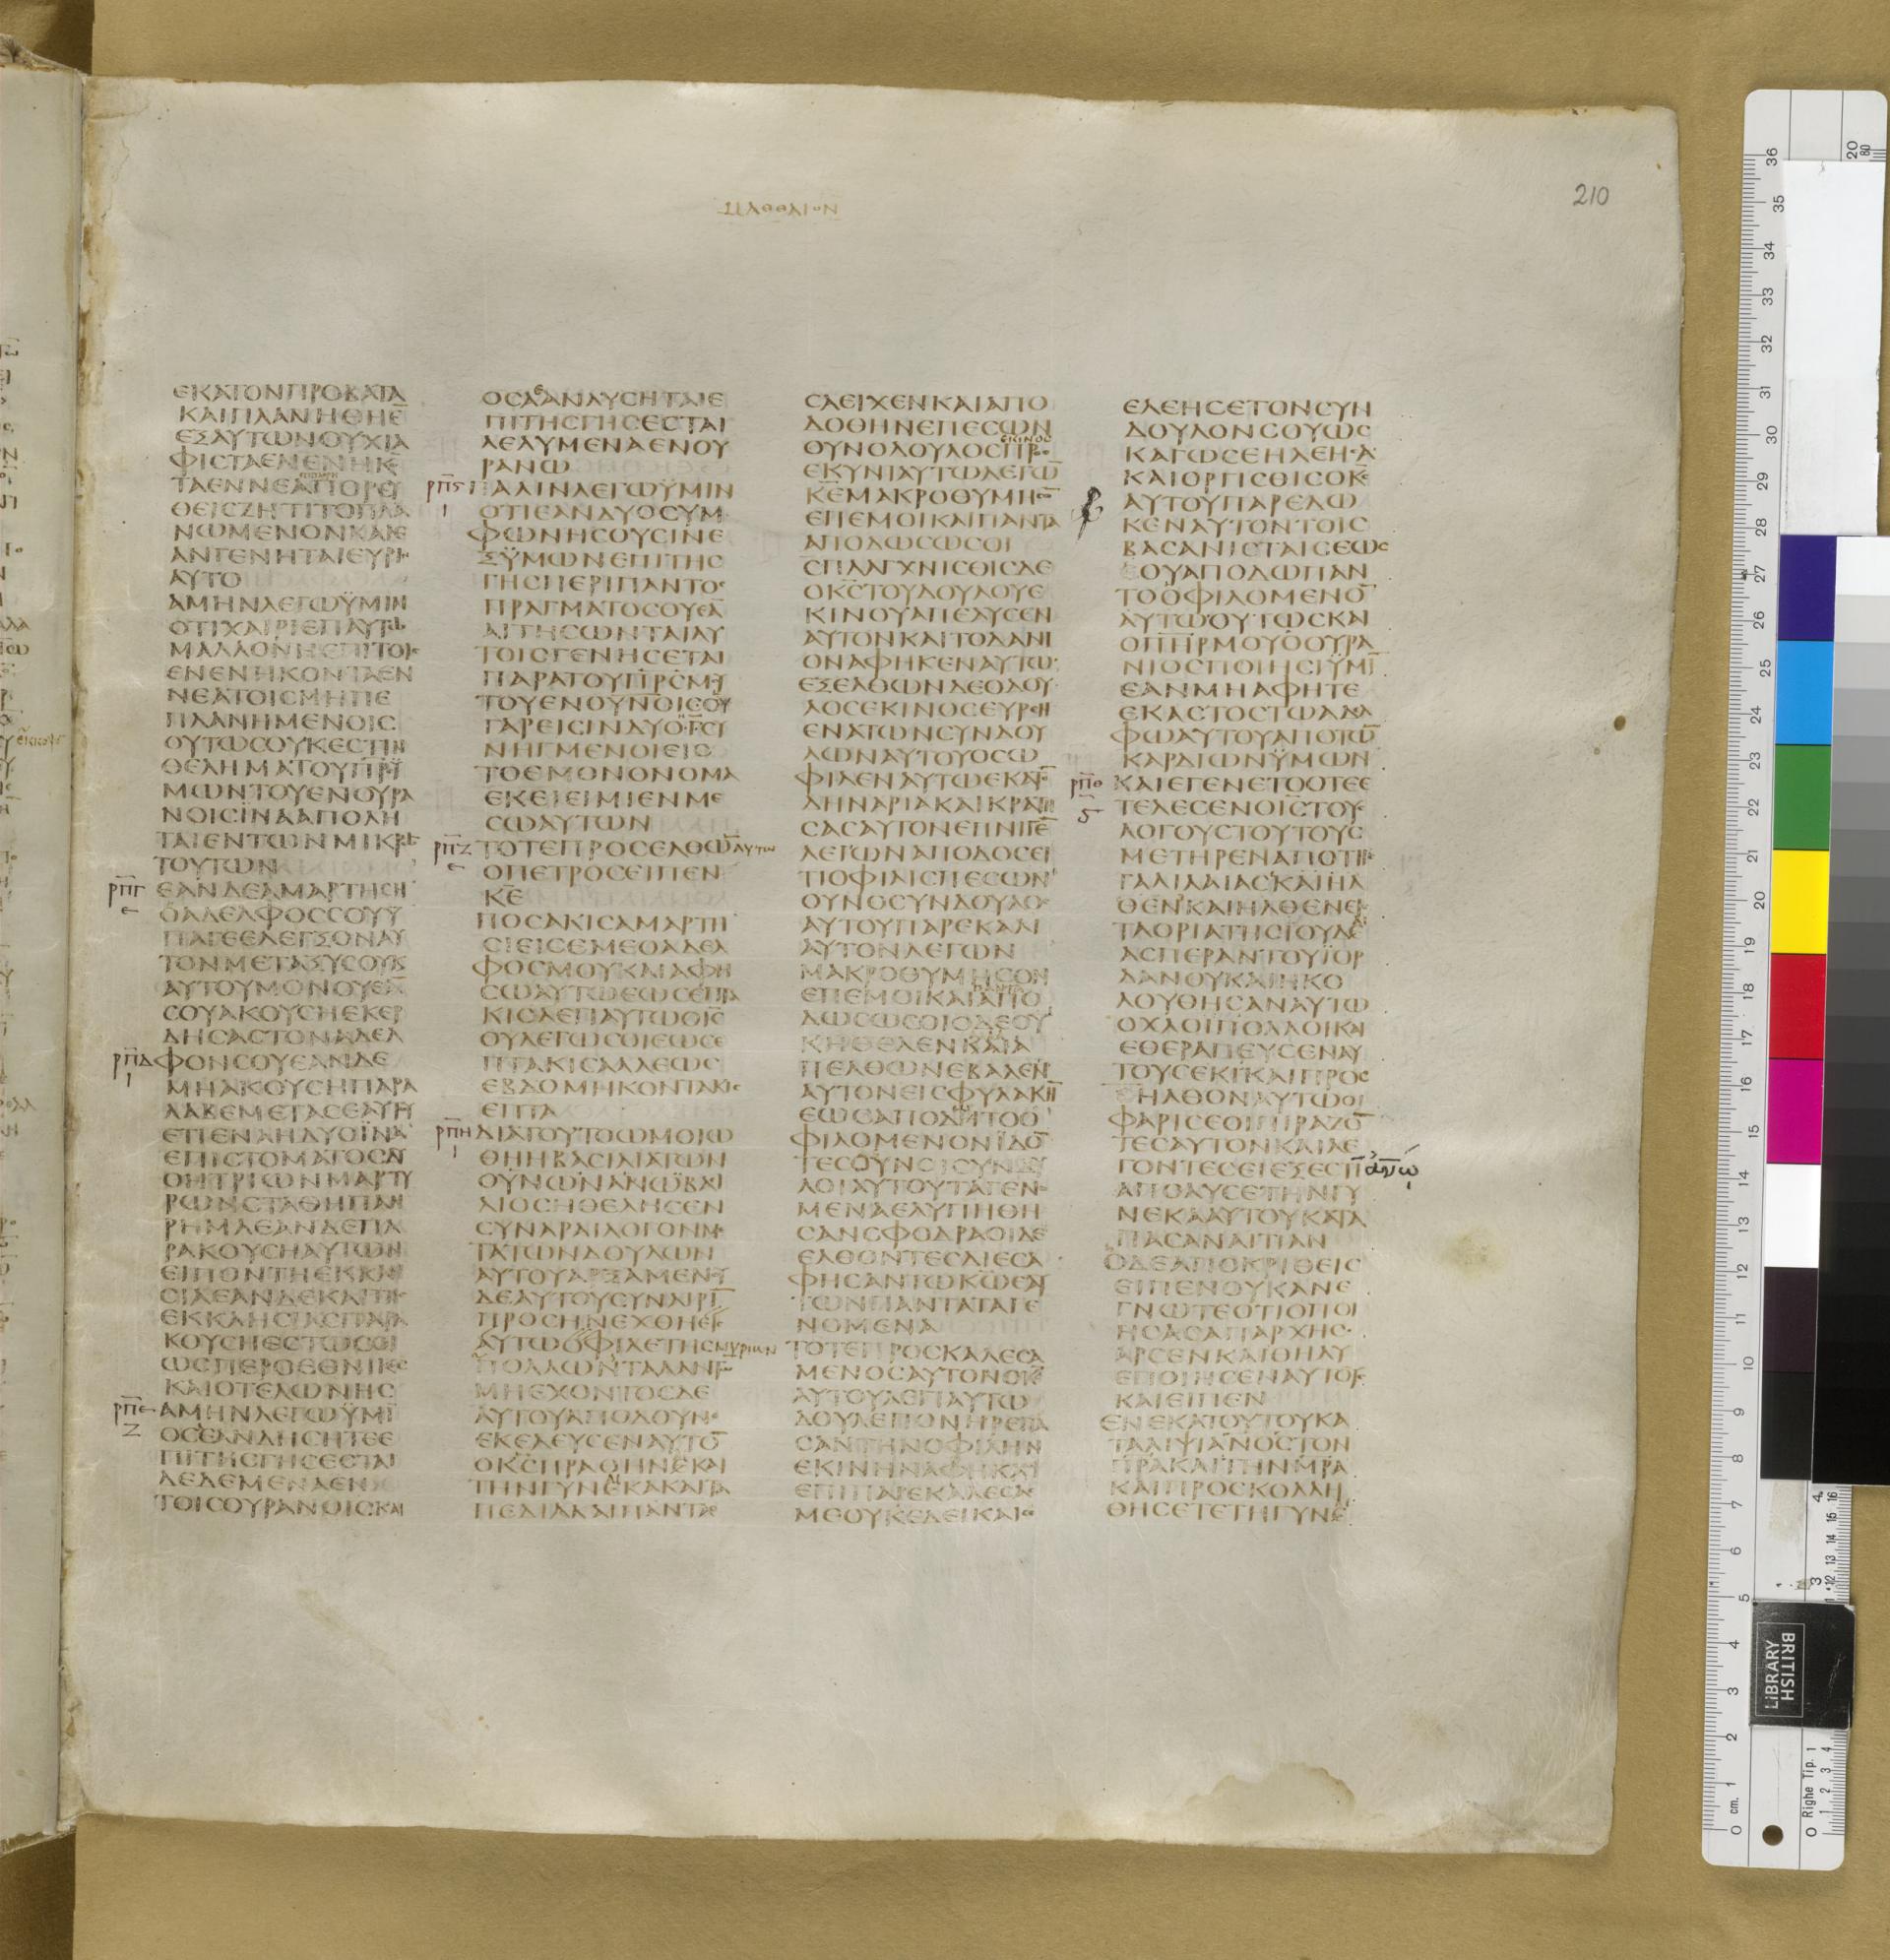 ΜΑΘΘΑΙΟΝ
210
ΕΚΑΤΟΝΠΡΟΒΑΤΑ
ΚΑΙΠΛΑΝΗΘΗΕ̅
ΕΞΑΥΤΩΝΟΥΧΙΑ
ΦΙΣΤΑΕΝΕΝΗΚΕ̅
ΘΕΙCΖΗΤΙΤΟΠΛΑ
ΝΩΜΕΝΟΝΚΑΙΕ
ΑΝΓΕΝΗΤΑΙΕΥΡΙ
ΑΥΤΟ
ΑΜΗΝΛΕΓΩΫΜΙΝ
ΟΤΙΧΑΙΡΙΕΠΑΥΤΩ
ΜΑΛΛΟΝΗΕΠΙΤΟΙC
ΕΝΕΝΗΚΟΝΤΑΕΝ
ΝΕΑΤΟΙCΜΗΠΕ
ΠΛΑΝΗΜΕΝΟΙC
ΟΥΤΩCΟΥΚΕCΤΙΝ
ΘΕΛΗΜΑΤΟΥΠΡ̅Ϋ
ΜΩΝΤΟΥΕΝΟΥΡΑ
ΝΟΙCΙΝΑΑΠΟΛΗ
ΤΑΙΕΝΤΩΝΜΙΚΡΩ
ΤΟΥΤΩΝ
ρπγ ΕΑΝΔΕΑΜΑΡΤΗCΗ
ΟΑΔΕΛΦΟCCΟΥΫ
ΠΑΓΕΕΛΕΓΞΟΝΑΥ
ΤΟΝΜΕΤΑΞΥCΟΥΚ
ΑΥΤΟΥΜΟΝΟΥΕΑ̅
CΟΥΑΚΟΥCΗΕΚΕΡ
ΔΗCΑCΤΟΝΑΔΕΛ
ρπδ ΦΟΝCΟΥΕΑΝΔΕ
ΜΗΑΚΟΥCΗΠΑΡΑ
ΛΑΒΕΜΕΤΑCΕΑΥΤΥ
ΕΤΙΕΝΑΗΔΥΟΪΝΑ
ΕΠΙCΤΟΜΑΤΟCΔΥ
ΟΗΤΡΙΩΝΜΑΡΤΥ
ΡΩΝCΤΑΘΗΠΑΝ
ΡΗΜΑΕΑΝΔΕΠΑ
ΡΑΚΟΥCΗΑΥΤΩΝ
ΕΙΠΟΝΤΗΕΚΚΛΗ
CΙΑΕΑΝΔΕΚΑΙΤΗC
ΕΚΚΛΗCΙΑCΠΑΡΑ
ΚΟΥCΗΕCΤΩCΟΙ
ΩCΠΕΡΟΕΘΝΙΚΟC
ΚΑΙΟΤΕΛΩΝΗC
ρπε ΑΜΗΝΛΕΓΩΫΜΙ̅
ΟCΕΑΝΔΗCΗΤΕΕ
ΠΙΤΗCΓΗCΕCΤΑΙ
ΔΕΔΕΜΕΝΑΕΝ
ΤΟΙCΟΥΡΑΝΟΙCΚΑΙ
ΟCΑΑΝΛΥCΗΤΑΙΕ
ΠΙΤΗCΓΗCΕCΤΑΙ
ΛΕΛΥΜΕΝΑΕΝΟΥ
ΡΑΝΩ
ρπϛ ΠΑΛΙΝΛΕΓΩΫΜΙΝ
ΟΤΙΕΑΝΔΥΟCΥΜ
ΦΩΝΗCΟΥCΙΝΕ
ΞΫΜΩΝΕΠΙΤΗC
ΓΗCΠΕΡΙΠΑΝΤΟC
ΠΡΑΓΜΑΤΟCΟΥΕΑ̅
ΑΙΤΗCΩΝΤΑΙΑΥ
ΤΟΙCΓΕΝΗCΕΤΑΙ
ΠΑΡΑΤΟΥΠΡ̅CΜΥ
ΤΟΥΕΝΟΥΝΟΙCΟΥ
ΓΑΡΕΙCΙΝΔΥΟΗΓCΥ
ΝΗΓΜΕΝΟΙΕΙC
ΤΟΕΜΟΝΟΝΟΜΑ
ΕΚΕΙΕΙΜΙΕΝΜΕ
CΩΑΥΤΩΝ
ρπζ ΤΟΤΕΠΡΟCΕΛΘΩ̅ΑΥΤΩ
ΟΠΕΤΡΟCΕΙΠΕΝ
ΚΕ̅
ΠΟCΑΚΙCΑΜΑΡΤΗ
CΙΕΙCΕΜΕΟΑΔΕΛ
ΦΟCΜΟΥΚΑΙΑΦΗ
CΩΑΥΤΩΕΩCΕΠΤΑ
ΚΙCΛΕΓΙΑΥΤΩΟΙC
ΟΥΛΕΓΩCΟΙΕΩCΕ
ΠΤΑΚΙCΑΛΛΕΩC
ΕΒΔΟΜΗΚΟΝΤΑΚΙC
ΕΠΤΑ
ρπη ΔΙΑΤΟΥΤΟΩΜΟΙΩ
ΘΗΗΒΑCΙΛΙΑΤΩΝ
ΟΥΝΩΝΑΝΩΒΑΙ
ΛΙΟCΗΘΕΛΗCΕΝ
CΥΝΑΡΑΙΛΟΓΟΝΜΕ
ΤΑΤΩΝΔΟΥΛΩΝ
ΑΥΤΟΥΑΡΞΑΜΕΝΥ
ΔΕΑΥΤΟΥCΥΝΑΙΡΙ̅
ΠΡΟCΗΝΕΧΘΗΕΙC
ΑΥΤΩΟΦΙΛΕΤΗCΜΥΡΙΩΝ
ΠΟΛΛΩΝΤΑΛΑΝΤ
ΜΗΕΧΟΝΤΟCΔΕ
ΑΥΤΟΥΑΠΟΔΟΥΝΕ
ΕΚΕΛΕΥCΕΝΑΥΤΟ̅
ΟΚC̅ΠΡΑΘΗΝΕΚΑΙ
ΤΗΝΓΥΝΕΚΑΚΑΙΤΑ
ΠΕΔΙΑΚΑΙΠΑΝΤΑΟ
CΑΕΙΧΕΝΚΑΙΑΠΟ
ΔΟΘΗΝΕΠΕCΩΝ
εκινοc
ΟΥΝΟΔΟΥΛΟCΠΡΟC
ΕΚΥΝΙΑΥΤΩΛΕΓΩ̅
ΚΕ̅ΜΑΚΡΟΘΥΜΗCΟ̅
ΕΠΕΜΟΙΚΑΙΠΑΝΤΑ
ΑΠΟΔΩCΩCΟΙ
CΠΛΑΓΧΝΙCΘΙCΔΕ
ΟΚC̅ΤΟΥΔΟΥΛΟΥΕ
ΚΙΝΟΥΑΠΕΛΥCΕΝ
ΑΥΤΟΝΚΑΙΤΟΔΑΝΙ
ΟΝΑΦΗΚΕΝΑΥΤΩ
ΕΞΕΛΘΩΝΔΕΟΔΟΥ
ΛΟCΕΚΙΝΟCΕΥΡΕΝ
ΕΝΑΤΩΝCΥΝΔΟΥ
ΛΩΝΑΥΤΟΥΟCΩ
ΦΙΛΕΝΑΥΤΩΕΚΑΤΟ̅
ΔΗΝΑΡΙΑΚΑΙΚΡΑΤΗ
CΑCΑΥΤΟΝΕΠΝΙΓΕ̅
ΛΕΓΩΝΑΠΟΔΟCΕΙ
ΤΙΟΦΙΛΙCΠΕCΩΝ
ΟΥΝΟCΥΝΔΟΥΛΟC
ΑΥΤΟΥΠΑΡΕΚΑΛΙ
ΑΥΤΟΝΛΕΓΩΝ
ΜΑΚΡΟΘΥΜΗCΟΝ
παντα
ΕΠΕΜΟΙΚΑΙΑΠΟ
ΔΩCΩCΟΙΟΔΕΟΥ
ΚΗΘΕΛΕΝΚΑΙΑ
ΠΕΛΘΩΝΕΒΑΛΕΝ
ΑΥΤΟΝΕΙCΦΥΛΑΚΗ̅
ΕΩCΑΠΟΔΩΤΟΟ
ΦΙΛΟΜΕΝΟΝΪΔΟ̅
ΤΕCΟΥΝΟΙCΥΝΔΟΥ
ΛΟΙΑΥΤΟΥΤΑΓΕΝΟ
ΜΕΝΑΕΛΥΠΗΘΗ
CΑΝCΦΟΔΡΑΚΑΙ
ΕΛΘΟΝΤΕCΔΙΕCΑ
ΦΗCΑΝΤΩΚΩΕΑΥ
ΤΩΝΠΑΝΤΑΤΑΓΕ
ΝΟΜΕΝΑ
ΤΟΤΕΠΡΟCΚΑΛΕCΑ
ΜΕΝΟCΑΥΤΟΝΟΚC̅
ΑΥΤΟΥΛΕΓΙΑΥΤΩ
ΔΟΥΛΕΠΟΝΗΡΕΠΑ
CΑΝΤΗΝΟΦΙΛΗΝ
ΕΚΙΝΗΝΑΦΗΚΑCΟΙ
ΕΠΙΠΑΡΕΚΑΛΕCΑC
ΜΕΟΥΚΕΔΕΙΚΑΙCΕ
ΕΛΕΗCΕΤΟΝCΥΝ
ΔΟΥΛΟΝCΟΥΩC
ΚΑΓΩCΕΗΛΕΗCΑ
ΚΑΙΟΡΓΙCΘΙCΟΚC̅
ΑΥΤΟΥΠΑΡΕΔΩ
ΚΕΝΑΥΤΟΝΤΟΙC
ΒΑCΑΝΙCΤΑΙCΕΩC
ΟΥΑΠΟΔΩΠΑΝ
ΤΟΟΦΙΛΟΜΕΝΟ̅
ΑΥΤΩΟΥΤΩCΚΑΙ
ΟΠΗΡΜΟΥΟΟΥΡΑ
ΝΙΟCΠΟΙΗCΙΫΜΙ̅
ΕΑΝΜΗΑΦΗΤΕ
ΕΚΑCΤΟCΤΩΑΔΕΛ
ΦΩΑΥΤΟΥΑΠΟΤΩ̅
ΚΑΡΔΙΩΝΫΜΩΝ
ρπθ ΚΑΙΕΓΕΝΕΤΟΟΤΕΕ
ΤΕΛΕCΕΝΟΙCΤΟΥC
ΛΟΓΟΥCΤΟΥΤΟΥC
ΜΕΤΗΡΕΝΑΠΟΤΗC
ΓΑΛΙΛΑΙΑCΚΑΙΗΛ
ΘΕΝΚΑΙΗΛΘΕΝΕΙC
ΤΑΟΡΙΑΤΗCΙΟΥΔΕ
ΑCΠΕΡΑΝΤΟΥΪΟΡ
ΔΑΝΟΥΚΑΙΗΚΟ
ΛΟΥΘΗCΑΝΑΥΤΩ
ΟΧΛΟΙΠΟΛΛΟΙΚΑΙ
ΕΘΕΡΑΠΕΥCΕΝΑΥ
ΤΟΥCΕΚΙΚΑΙΠΡΟC
ΗΛΘΟΝΑΥΤΩΟΙ
ΦΑΡΙCΕΟΙΠΙΡΑΖΟ̅
ΤΕCΑΥΤΟΝΚΑΙΛΕ
ΓΟΝΤΕCΕΙΕΞΕCΤΙ̅ ανω
ΑΠΟΛΥCΕΤΗΝΓΥ
ΝΕΚΑΑΥΤΟΥΚΑΤΑ
ΠΑCΑΝΑΙΤΙΑΝ
ΟΔΕΑΠΟΚΡΙΘΕΙC
ΕΙΠΕΝΟΥΚΑΝΕ
ΓΝΩΤΕΟΤΙΟΠΟΙ
ΗCΑCΑΠΑΡΧΗC
ΑΡCΕΝΚΑΙΘΗΛΥ
ΕΠΟΙΗCΕΝΑΥΤΟΥC
ΚΑΙΕΙΠΕΝ
ΕΝΕΚΑΤΟΥΤΟΥΚΑ
ΤΑΛΙΨΙΑΝΟCΤΟΝ
ΠΡΑΚΑΙΤΗΝΜΡΑ
ΚΑΙΠΡΟCΚΟΛΛΗ
ΘΗCΕΤΕΤΗΓΥΝΕ
BRITISH
LIBRARY
0 cm. 1 2 3 4 5 6 7 8 9 10 11 12 13 14 15 16 17 18 19 20 21 22 23 24 25 26 27 28 29 30 31 32 33 34 35 36
0 Righe Tip. 1